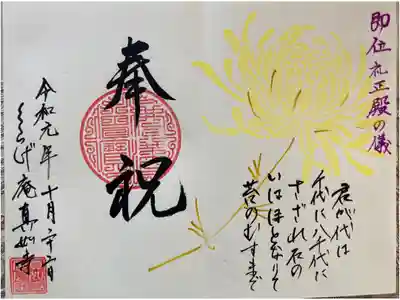 即位礼正殿の儀
君が代は
千代に八千代に
さざれ石の
いはほとなりて
苔のむすまで
奉祝
令和元年十月廿二日
くらげ庵真如寺